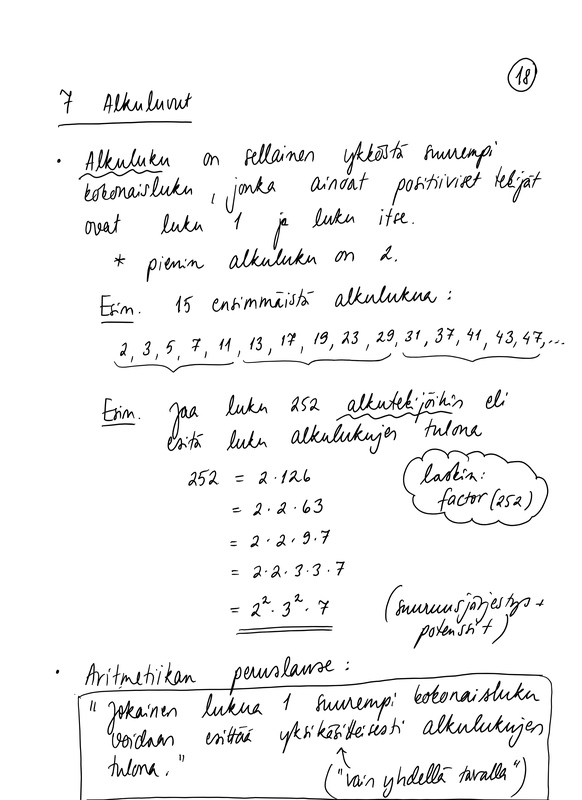 18
7 Alkuluvut
• Alkuluku on sellainen ykköstä suurempi
kokonaisluku, jonka ainoat positiiviset tekijät
ovat luku 1 ja luku itse.
* pienin alkuluku on 2.
Esim. 15 ensimmäistä alkulukua:
2, 3, 5, 7, 11, 13, 17, 19, 23, 29, 31, 37, 41, 43, 47, ...
Esim. Jaa luku 252 alkutekijöihin eli
esitä luku alkulukujen tulona
252 = 2·126
= 2·2·63
= 2·2·9·7
= 2·2·3·3·7
= 2²·3²·7
laskin:
factor(252)
(suuruusjärjestys +
potenssit)
• Aritmetiikan peruslause:
"Jokainen lukua 1 suurempi kokonaisluku
voidaan esittää yksikäsitteisesti alkulukujen
tulona."
("vain yhdellä tavalla")